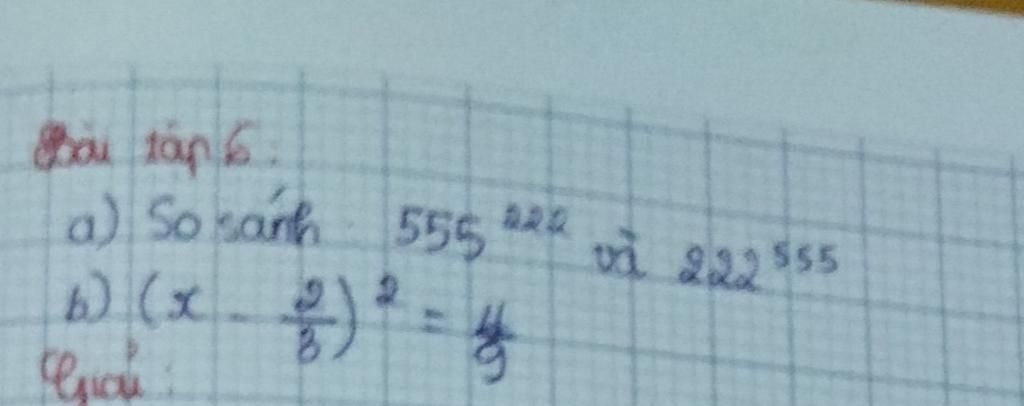 Bài tập 6:
a) So sánh 555^222 và 222^555
b) (x - 2/3)^2 = 4/9
Giải: